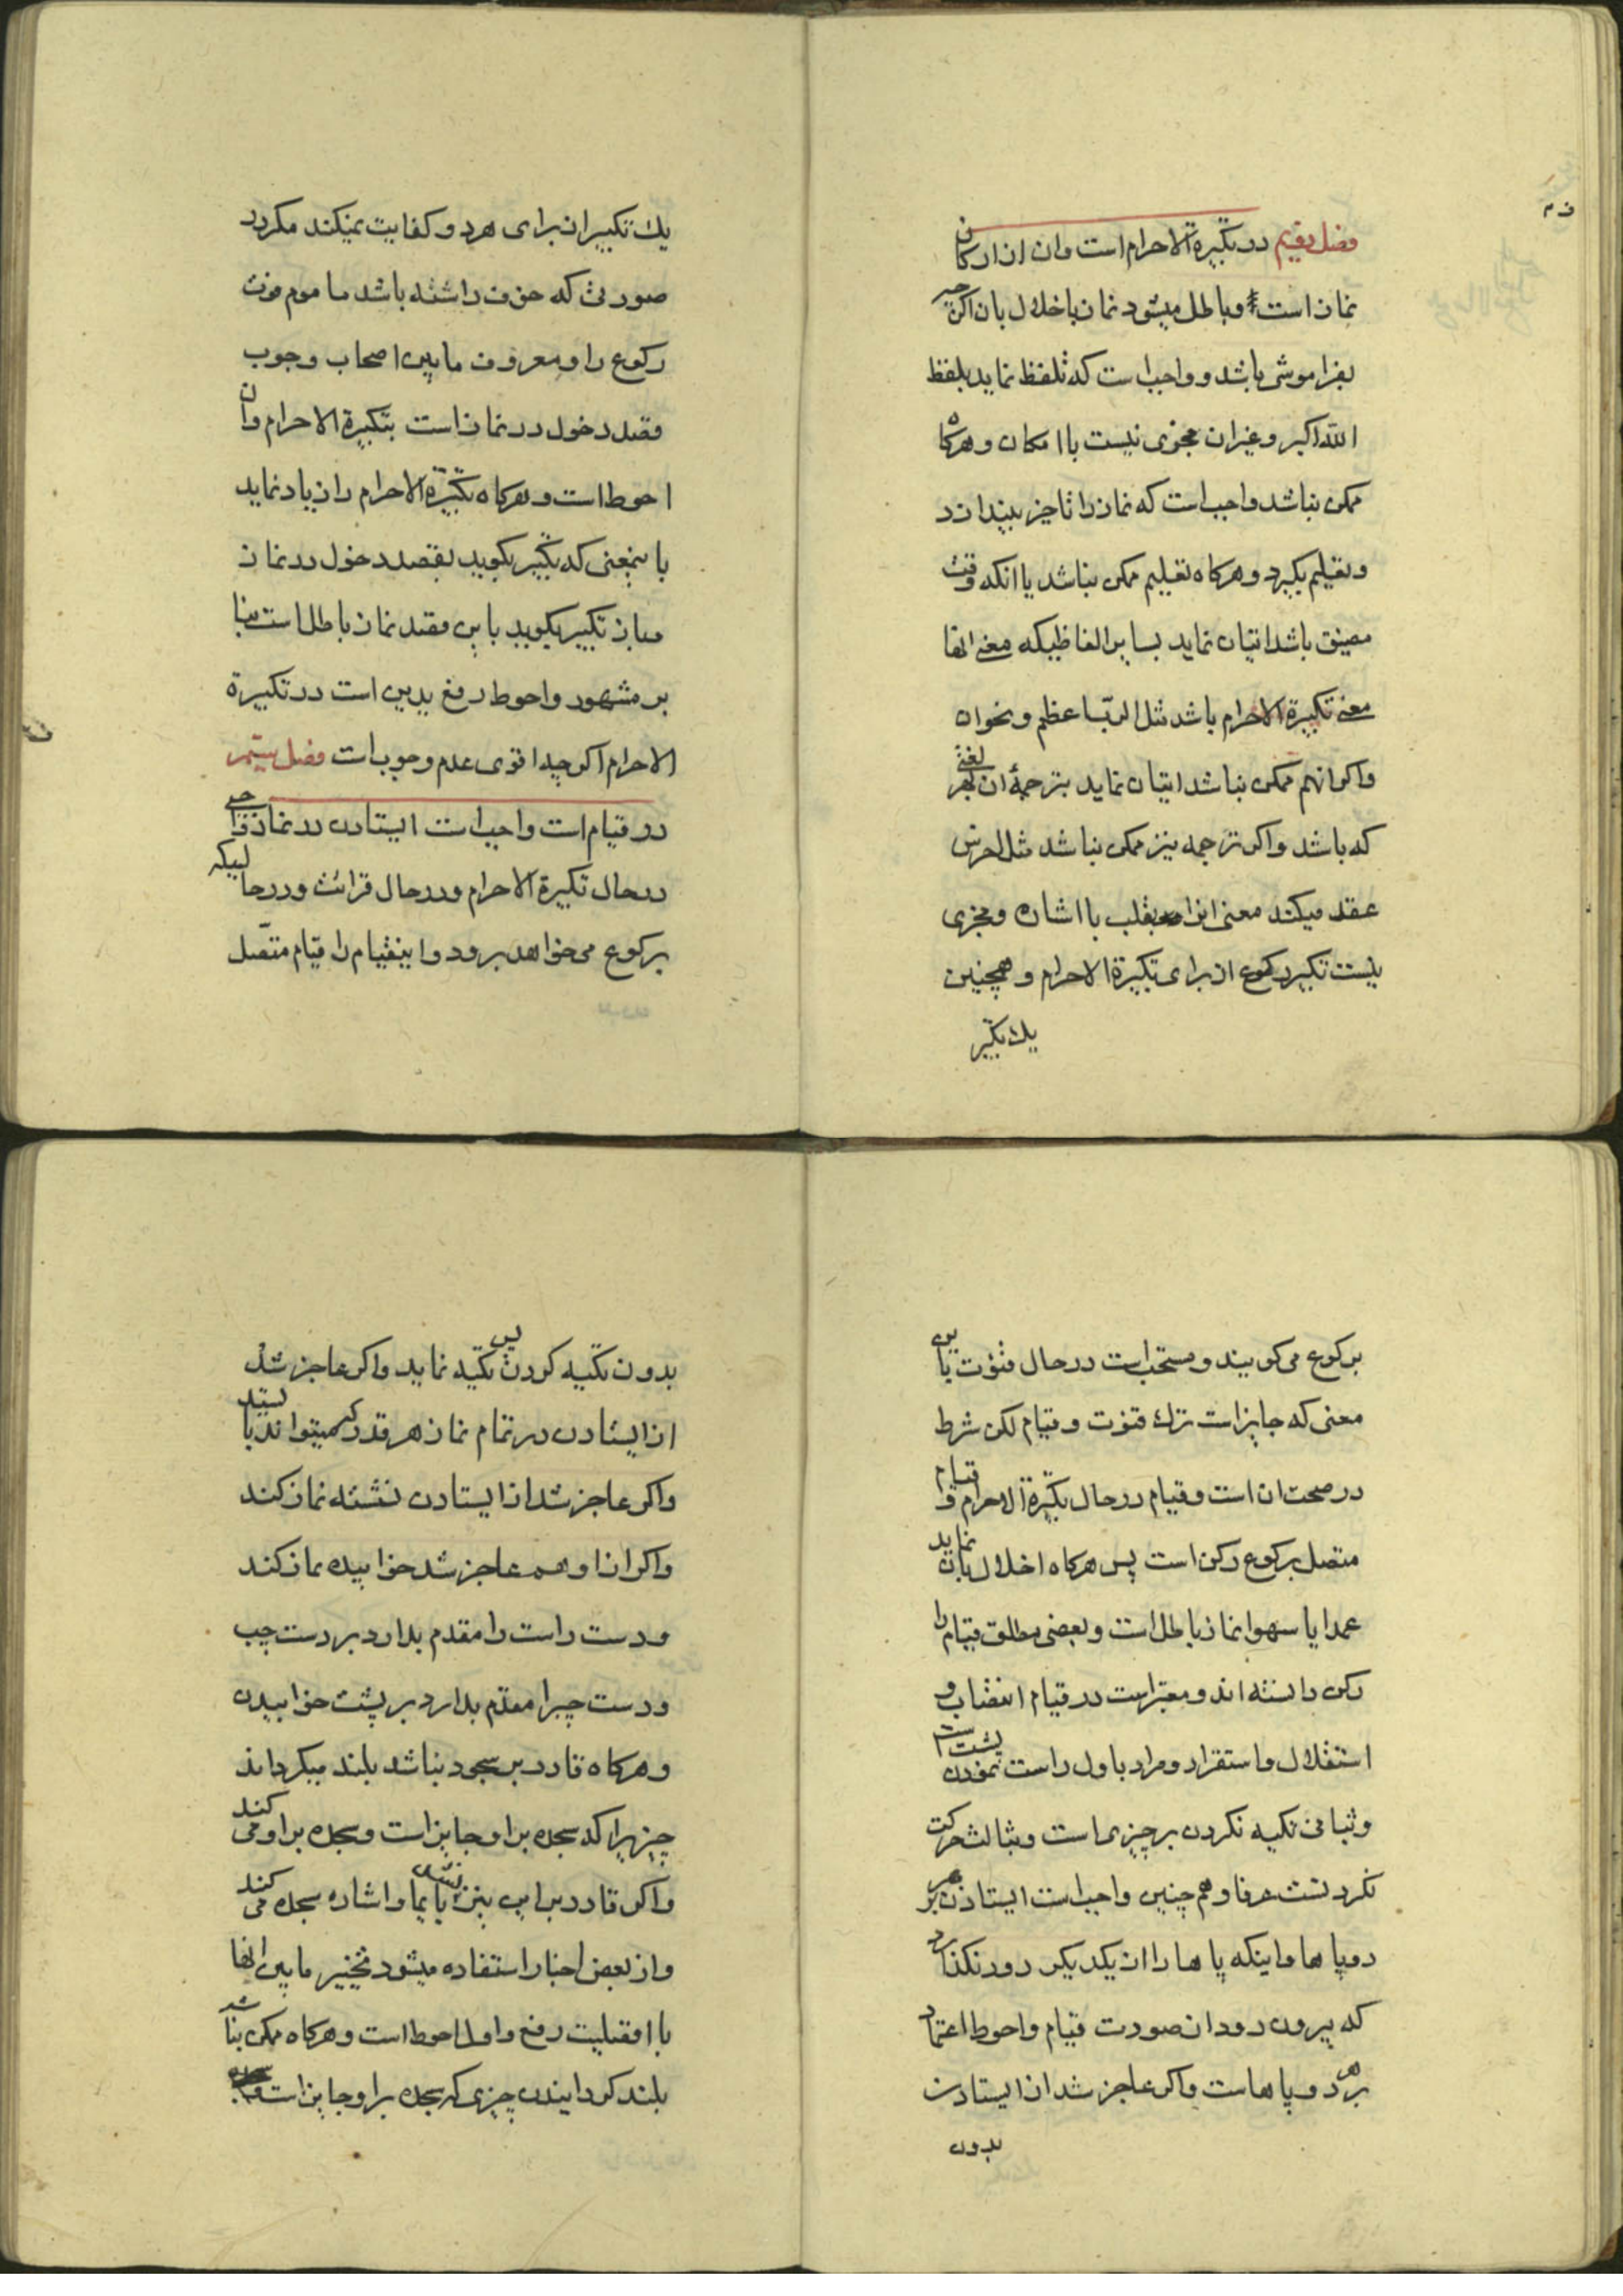 فصل دویم در تکبیرة الاحرام است و ان از ارکان
نماز است و باطل میشود نماز باخلال بان اکرچه
بفراموشی باشد و واجب است که تلفظ نماید بلفظ
الله اکبر و غیر ان مجزی نیست با امکان و هرکاه
ممکن نباشد واجب است که نماز را تاخیر بیندازد
و تعلیم بکیرد و هرکاه تعلیم ممکن نباشد یا انکه وقت
مضیق باشد اتیان نماید بسایر الفاظیکه معنی انها
معنی تکبیرة الاحرام باشد مثل الرب اعظم و نحو ان
و اکر انهم ممکن نباشد اتیان نماید بترجمهٔ ان بهر لغتی
که باشد و اکر ترجمه نیز ممکن نباشد مثل اخرس
عقد میکند معنی انرا بقلب با اشاره و مجزی
نیست تکبیر رکوع از برای تکبیرة الاحرام و همچنین
یک تکبیر
یک تکبیر از برای هر دو کفایت نمیکند مکر در
صورتی که خوف داشته باشد ماموم فوت
رکوع را و معروف مابین اصحاب وجوب
قصد دخول در نماز است بتکبیرة الاحرام و ان
احوط است و هرکاه تکبیرة الاحرام را زیاد نماید
باینمعنی که تکبیر بکوید بقصد دخول در نماز
و باز تکبیر بکوید باین مقصد نماز باطل است بنا
بر مشهور و احوط رفع یدین است در تکبیرة
الاحرام اکرچه اقوی عدم وجوب است فصل سیّم
در قیام است واجب است ایستادن در نماز واجبی
در حال تکبیرة الاحرام و در حال قرائت و در حالیکه
برکوع می خواهد برود و اینقیام را قیام متّصل
برکوع می کویند و مستحب است در حال قنوت باین
معنی که جایز است ترک قنوت و قیام لکن شرط
در صحت ان است و قیام در حال تکبیرة الاحرام و قیام
متصل برکوع رکن است پس هرکاه اخلال بان نماید
عمدا یا سهوا نماز باطل است و بعضی مطلق قیام را
رکن دانسته اند و معتبر است در قیام انتصاب و
استقلال و استقرار و مراد باول راست نمودن پشت است
و ثبانی تکیه نکردن بر چیزی است و بثالث حرکت
نکردنست عرفا و هم چنین واجب است ایستادن بر هر
دو پاها و اینکه پاها را از یکدیکر دور نکذارد
که بیرون رود از صورت قیام و احوط اعتماد
بر هر دو پاها است و اکر عاجز شد از ایستادن
بدون
بدون تکیه کردن پس تکیه نماید و اکر عاجز شد
از ایستادن در تمام نماز هر قدر که میتواند بایستد
و اکر عاجز شد از ایستادن نشسته نماز کند
و اکر از او هم عاجز شد خوابیده نماز کند
و دست راست را مقدم بدارد بر دست چپ
و دست چپرا مقدم بدارد بر پشت خوابیدن
و هرکاه قادر بر سجود نباشد بلند میکرداند
چیزیرا که سجده بر او جایز است و سجده بر او می کند
و اکر قادر بر این نیز نشد بایما و اشاره سجده می کند
و از بعض اخبار استفاده میشود تخییر مابین انها
با افضلیت رفع و اول احوط است و هرکاه ممکن نباشد
بلند کردانیدن چیزی که سجده بر او جایز است